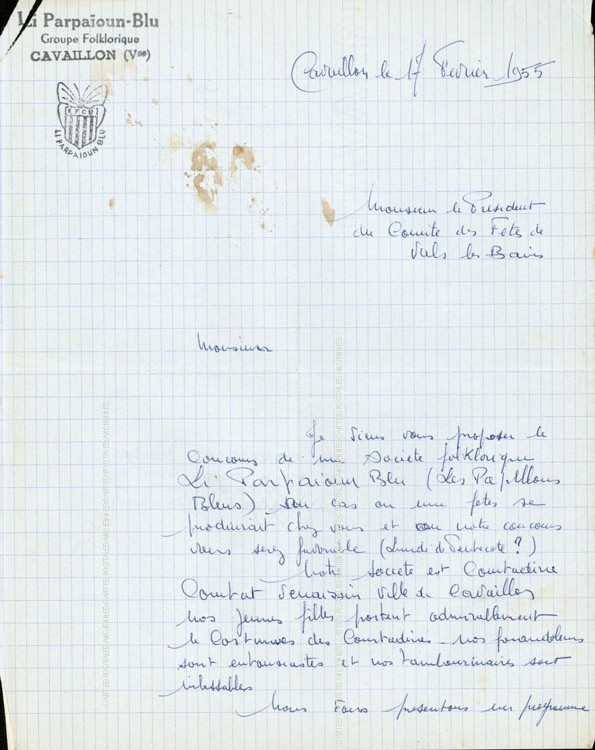 Li Parpaïoun-Blu
Groupe Folklorique
CAVAILLON (Vse)
LI PARPAIOUN BLU
Cavaillon le 17 Fevrier 1955
Monsieur le President
du Comite des Fetes de
Vals les Bains
Monsieur
Je viens vous proposer le
Concours de Societe folKlorique
Li Parpaioun Blu (Les Papillons
Bleus) cas ou une fetes se
produirait chez vous et ou notre concours
serez favorable (Lundi de Pentecote ?)
Notre societe est Comtadine
Comtat Venaissin Ville de Cavaillon
nos jeunes filles portent admirablement
le Costumes des Comtadines - nos farandoleurs
sont entousiastes et nos tambourinaires sont
inlassables
Nous presentons un programme